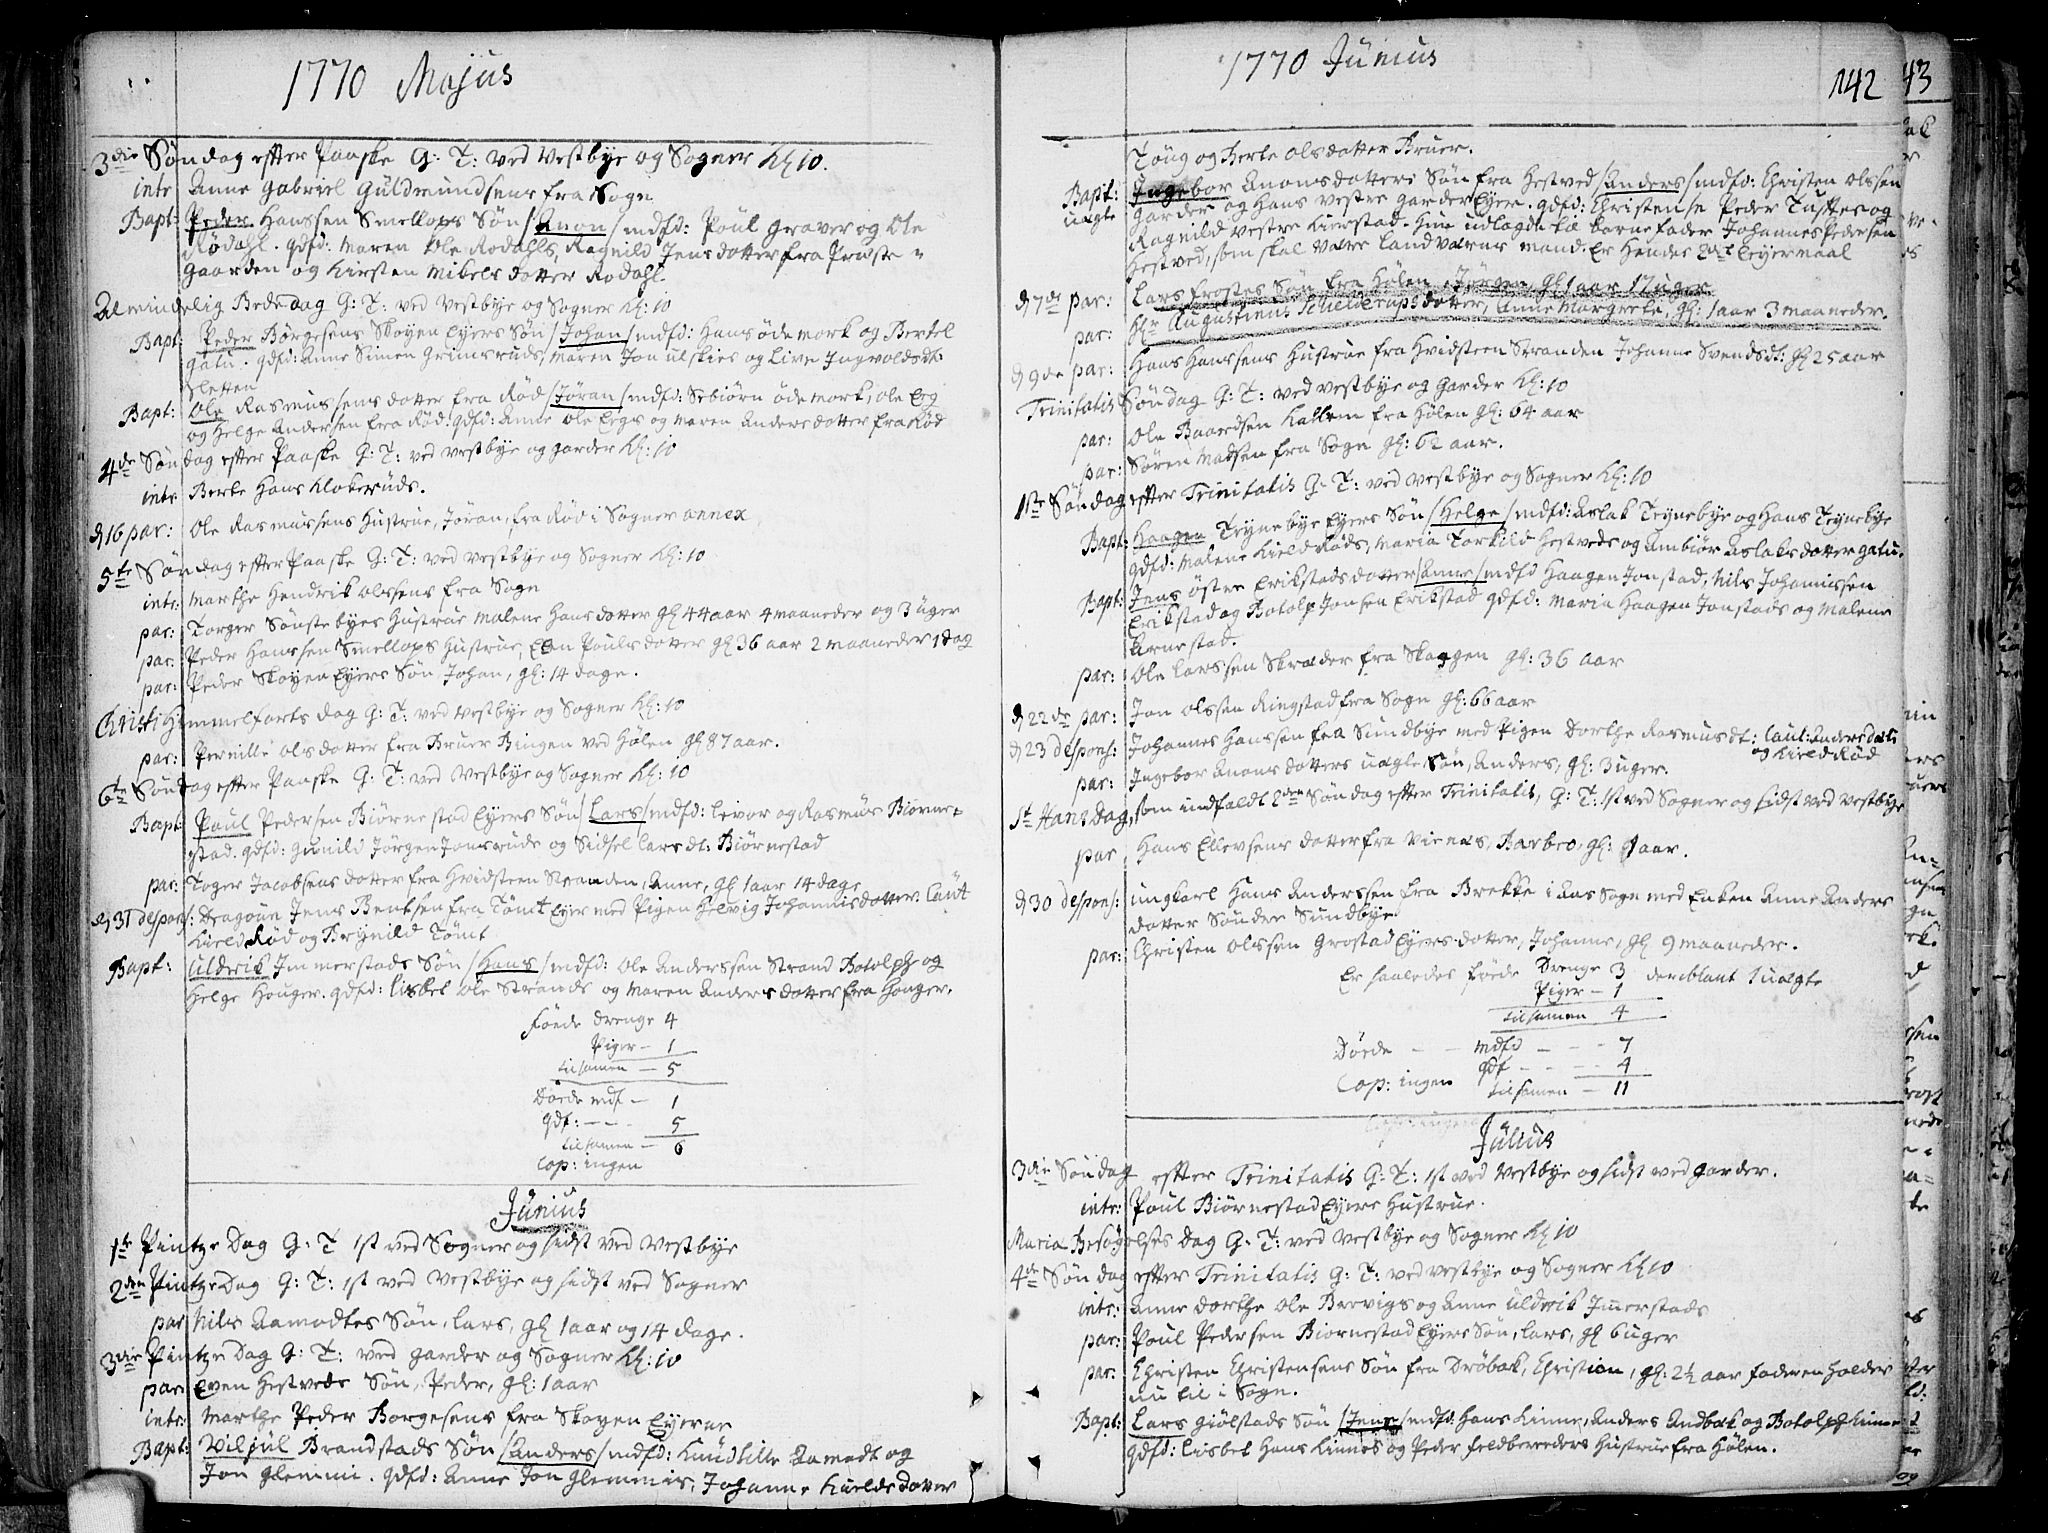 1770 Majus
3die Søndag efter Paaske G: T: ved Vestbye og Sogner Kl 10.
intr Anne Gabriel Guldmundsens fra Sogn
Bapt: Peder Hanssen Smellops Søn /Anon/ mdfd: Poul Graver og Ole
Rødahl. qdfd: Maren Ole Rodahls, Ragnild Jensdotter fra Præste-
Gaarden og Kirsten Mikelsdotter Rødahl.
Almindelig Bededag G: T: ved Vestbye og Sogner Kl: 10
Bapt: Peder Børgesens Skøyen Eyers Søn /Johan/ mdfd: Hans ødemork og Bertel
gatu. qdfd: Anne Simen Grimsruds, Maren Jon ulskies og Live Ingvoldsdt:
Sletten
Bapt: Ole Rasmussens dotter fra Rød /Jøran/ mdfd: Sebiørn ødemork, Ole Eeg
og Helge Andersen fra Rød. qdfd: Anne Ole Eegs og Maren Andersdotter fra Rød
4de Søndag efter Paaske G: T: ved Vestbye og Garder Kl: 10
intr Berte Hans Klokeruds.
d 16 par: Ole Rasmussens Hustrue, Jøran, fra Rød i Sogner annex
5te Søndag efter Paaske G: T: ved Vestbye og Sogner Kl: 10
intr: Marthe Hendrik Olssens fra Sogn
par: Torger Sønstebyes Hustrue Malene Hansdotter gl 44 aar 4 maaneder og 3 uger
par: Peder Hanssen Smellops Hustrue, Elen Poulsdotter gl 36 aar 2 maaneder 1 dag
par: Peder Skøyen Eyers Søn Johan, gl: 14 dage.
Christi Himmelfarts dag G: T: ved Vestbye og Sogner Kl: 10
par: Pernille Olsdotter fra Bruer Bingen ved Hølen gl 87 aar.
6te Søndag efter Paaske G: T: ved Vestbye og Sogner Kl: 10
Bapt: Poul Pedersen Biørnestad Eyers Søn /Lars/ mdfd: Levor og Rasmus Biørne-
stad. qdfd: Gunild Jørgen Jonsruds og Sidsel Larsdt: Biørnestad
par: Toger Jacobsens dotter fra Hvidsteen Stranden, Anne, gl 1 aar 14 dage
d 31 despons: Dragoun Jens Bentsen fra Tømt Eyer med Pigen Helvig Johannisdotter. Caut
Kield Rød og Brynild Tømt
Bapt: Uldrik Immerstads Søn /Hans/ mdfd: Ole Anderssen Strand Botolph og
Helge Houger. qdfd: Lisbet Ole Strands og Maren Andersdotter fra Houger.
Føede Drenge 4
Piger - 1
tilsamen - 5
Døede mdf - 1
qdf: - - - 5
tilsamen - 6
Cop: ingen
Junius
1te Pintze Dag G: T 1st ved Sogner og sidst ved Vestbye
2den Pintze Dag G: T: 1st ved Vestbye og sidst ved Sogner
par Nils Aamodtes Søn, Lars, gl 1 aar og 14 dage.
3die Pintze Dag G: T: ved Garder og Sogner Kl: 10
par: Even Hestveds Søn, Peder, gl: 1 aar
intr: Marthe Peder Borgesens fra Skøyen Eyerne
Bapt: Viljul Brandstads Søn /Anders/ mdfd: Knud Lille Aamodt og
Jon Glemmi. qdfd: Anne Jon Glemmis, Johanne Kieldsdotter
1770 Junius
142
Toug og Berte Olsdotter Bruer.
Bapt: Ingebor Anonsdotters Søn fra Hestved /Anders/ mdfd: Christen Olssen
uægte Garder og Hans Vestre Garder Eyer. qdfd: Christense Peder Tufftes og
Ragnild Vestre Kierstad. Hun udlagde til barnefader Johannes Pedersen
Hestved, som skal være Landværns mand. Er Hendes 2det Leyermaal
d 7de par: Lars Frostes Søn fra Hølen, Jørgen, gl 1 aar 17 uger
par: Hr Augustinus Schielderups dotter, Anne Margrete, gl: 1 aar 3 maaneder.
d 9de par: Hans Hanssens Hustrue fra Hvidsteen Stranden Johanne Svendsdt: gl 25 aar
Trinitatis Søndag G: T: ved Vestbye og Garder Kl: 10
par: Ole Baardsen Kallum fra Hølen gl: 64 aar
par: Søren Madsen fra Sogn gl: 62 aar.
1ste Søndag efter Trinitatis G: T: ved Vestbye og Sogner Kl: 10
Bapt: Haagen Teynebye Eyers Søn /Helge/ mdfd: Aslak Teynebye og Hans Teynebye
qdfd: Malene Kield Røds, Maria Torkild Hestveds og Ambiør Aslaksdotter gatu.
Bapt: Jens østre Erikstads dotter /Anne/ mdfd Haagen Jonstad, Nils Johannissen
Erikstad og Botolp Jonsen Erikstad qdfd: Maria Haagen Jonstads og Malene
Arnestad.
par: Ole Larssen Skræder fra Skoggen gl: 36 aar
d 22de par: Jon Olssen Ringstad fra Sogn gl: 66 aar
d 23 despons: Johannes Hanssen fra Sundbye med Pigen Dorthe Rasmusdt: Caut:
og Kield Rød
par: Ingebor Anonsdotters uægte Søn, Anders, gl: 3 uger.
St Hans Dag, som indfaldt 2den Søndag efter Trinitatis, G: T: 1st ved Sogner og sidst ved Vestbye
par Hans Ellevsens dotter fra , Barbro, gl: aar.
d 30 despons: ungkarl Hans Anderssen fra Brekke i Aas Sogn med Enken Anne Anders
dotter Søndre Sundbye
par: Christen Olssen Grostad Eyers dotter, Johanne, gl 9 maaneder.
Er saaledes føede Drenge 3 deriblant 1 uægte
Piger - 1
tilsamen 4
Døede - - mdfd - - - 7
qdf - - - - 4
Cop: ingen tilsamen - 11
Julius
3die Søndag efter Trinitatis G: T: 1st ved Vestbye og sidst ved Garder.
intr: Poul Biørnestad Eyers Hustrue.
Maria Besøgelses Dag G: T: ved Vestbye og Sogner Kl 10
4de Søndag efter Trinitatis G: T: ved Vestbye og Sogner Kl 10
intr: Anne Dorthe Ole Brevigs og Anne Uldrik Immerstads
par: Poul Pedersen Biørnestad Eyers Søn, Lars, gl 6 uger
par: Christen Christensens Søn fra Drøbak, Christian, gl: 2½ aar Faderen holder
nu til i Sogn.
Bapt: Lars Giølstads Søn /Jens/ mdfd. Hans Kinne, Anders Andbæk og Botolph Kinne
qdfd: Lisbet Hans Kinnes og Peder Feldbereeders Hustrue fra Hølen.